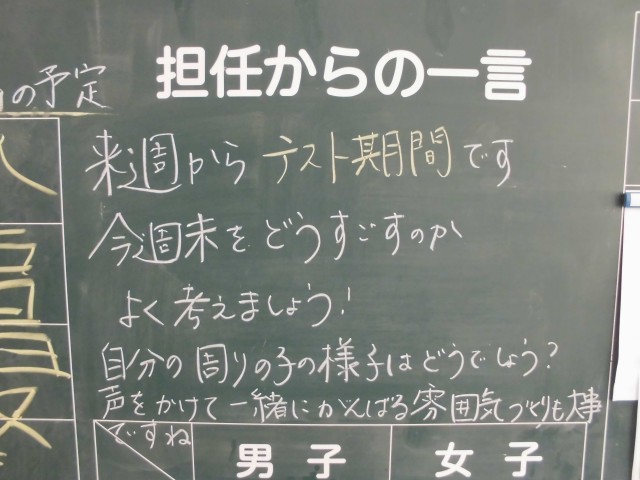 の予定
担任からの一言
来週から テスト期間です
今週末をどうすごすのか
よく考えましょう!
自分の周りの子の様子はどうでしょう?
声をかけて一緒にがんばる雰囲気づくりも大事
ですね
男子
女子